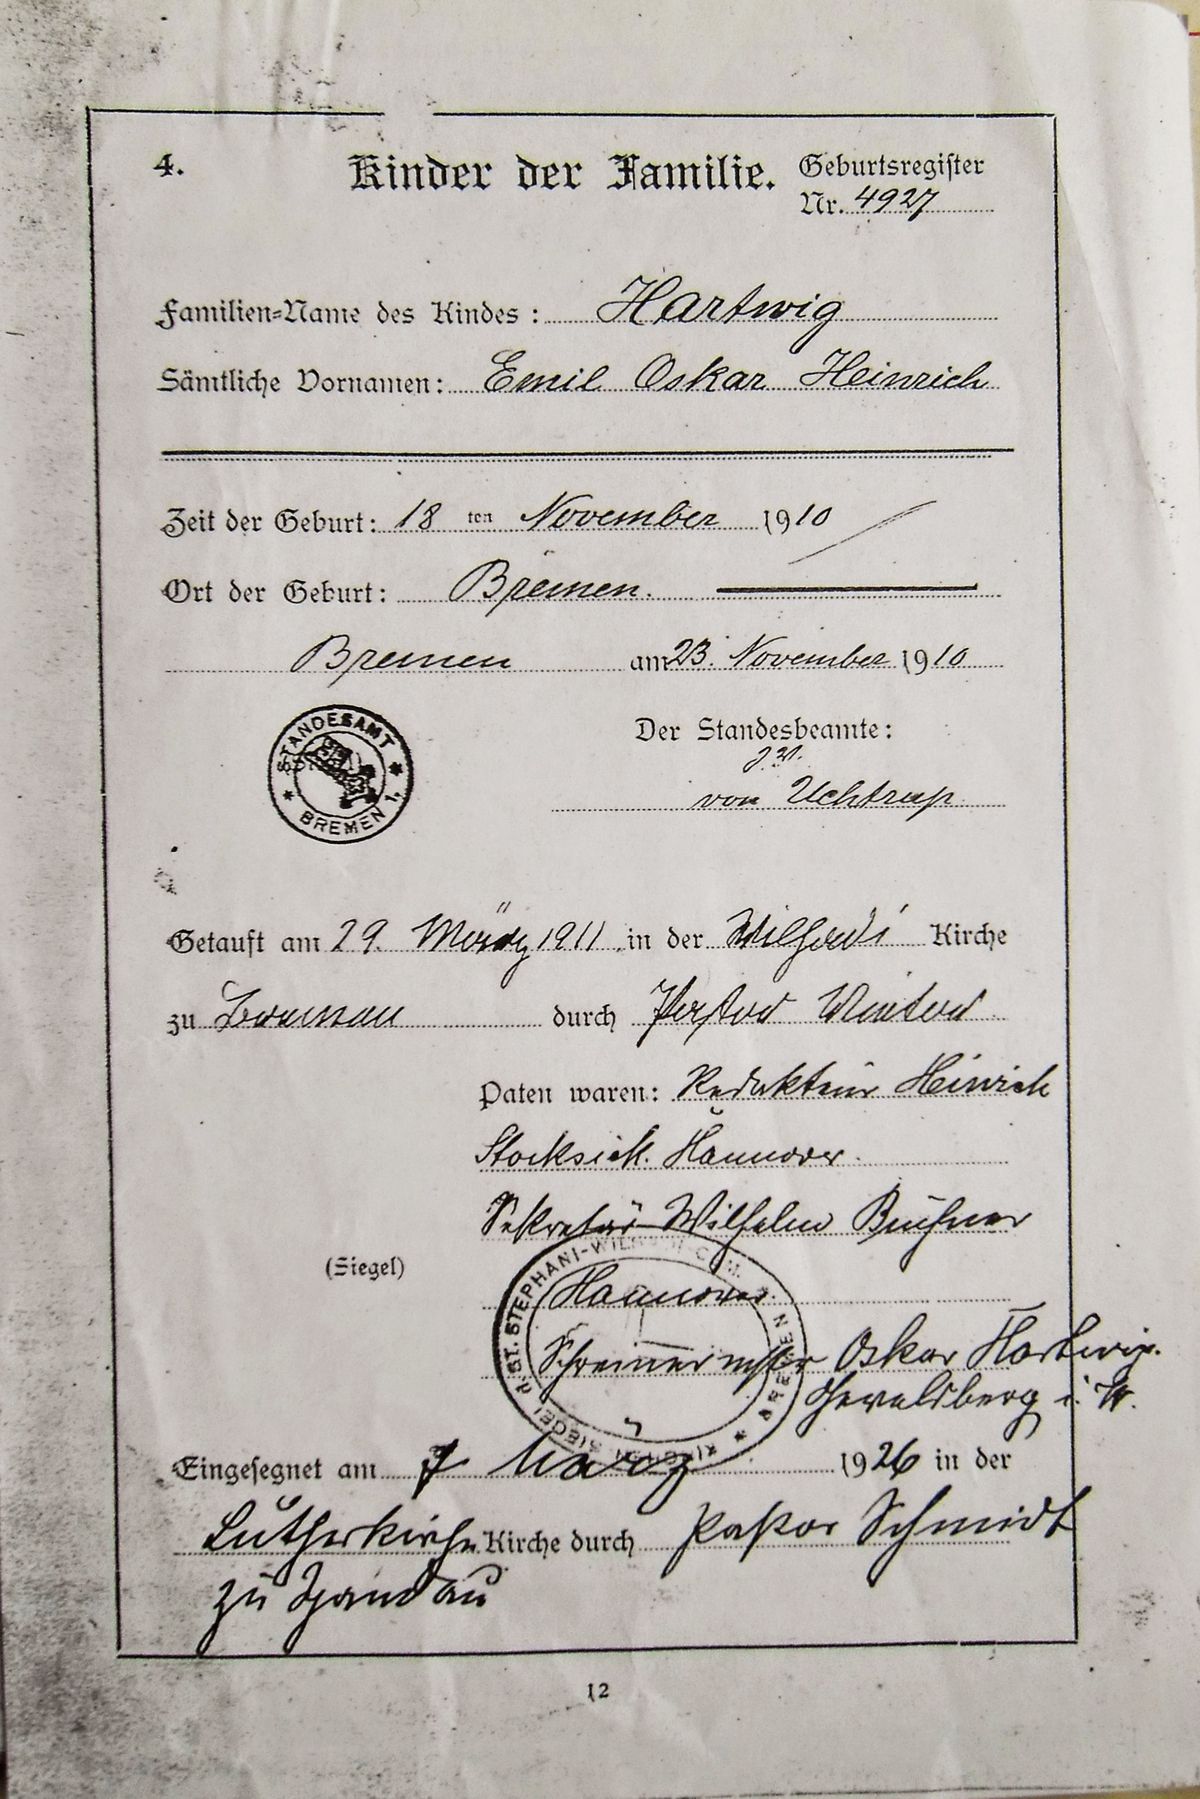 4. Kinder der Familie. Geburtsregister
Nr. 4927
Familien-Name des Kindes: Hartwig
Sämtliche Vornamen: Emil Oskar Heinrich
Zeit der Geburt: 18 ten November 1910
Ort der Geburt: Bremen.
Bremen am 23. November 1910
Der Standesbeamte:
von Uchtrup
STANDESAMT
BREMEN 1.
Getauft am 29. März 1911 in der Wilhadi Kirche
zu Bremen durch Pastor Winter
Paten waren: Redakteur Heinrich
Stocksick. Hannover.
Sekretär Wilhelm Büchner
(Siegel)
Hannover.
Schreinermstr Oskar Hartwig.
Gevelsberg i. W.
KIRCHEN SIEGEL d. ST. STEPHANI-WILHADI GEM. BREMEN
Eingesegnet am 7 März 1926 in der
Lutherkirche Kirche durch Pastor Schmidt
zu Spandau
12